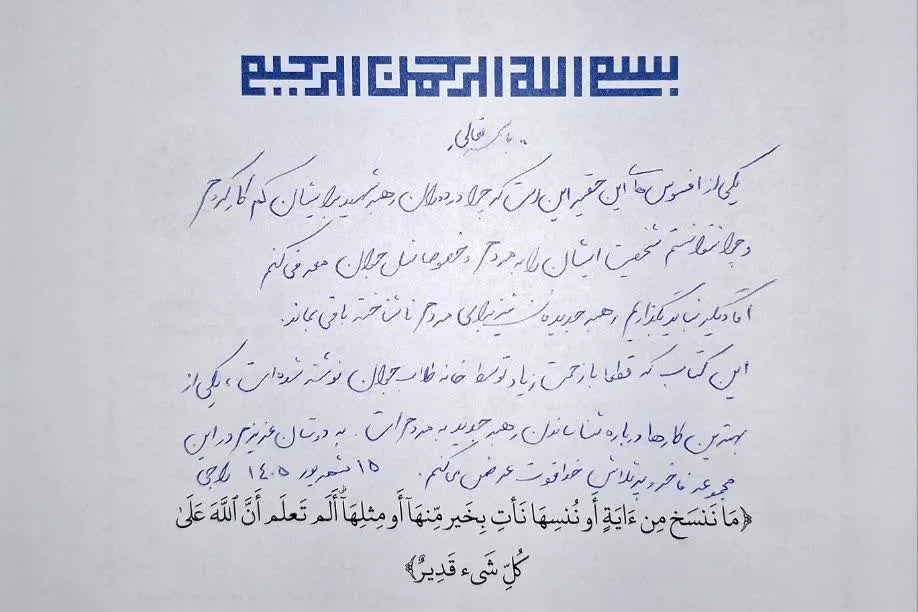 بسم الله الرحمن الرحیم
باسمه تعالی
یکی از افسوس های این حقیر این است که چرا در دوران رهبر شهید برای ایشان کم کار کردم
و چرا نتوانستم شخصیت ایشان را به مردم و خصوصا نسل جوان معرفی کنم
اما دیگر نباید بگذاریم رهبر جدیدمان نیز برای مردم ناشناخته باقی بماند.
این کتاب که قطعا با زحمت زیاد توسط خانه طلاب جوان نوشته شده است، یکی از
بهترین کارها درباره شناساندن رهبر جدید به مردم است. به دوستان عزیزم در این
مجموعه فاخر و پرتلاش خداقوت عرض می کنم. ۱۵ شهریور ۱۴۰۵ راجی
﴿مَا نَنسَخ مِن ءَايَةٍ أَو نُنسِهَا نَأتِ بِخَيرٍ مِّنهَآ أَو مِثلِهَآۗ أَلَم تَعلَم أَنَّ ٱللَّهَ عَلَىٰ
كُلِّ شَيءٍ قَدِيرٌ﴾